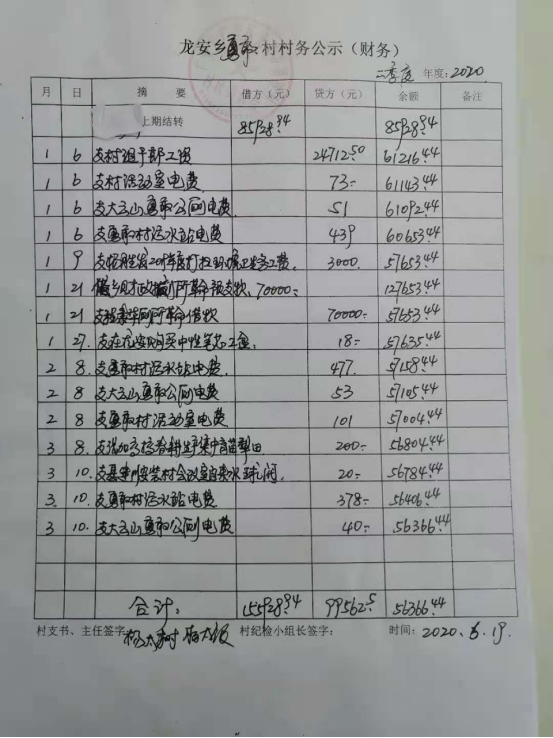 龙安乡勇敢村村务公示（财务）
二季度 年度：2020
月 日 摘 要 借方（元） 贷方（元） 余额 备注
上期结转 85928.94 85928.94
1 6 支村组干部工资 24712.50 61216.44
1 6 支村活动室电费 73- 61143.44
1 6 支大云山勇敢公厕电费 51 61092.44
1 6 支勇敢村污水站电费 439 60653.44
1 9 支 2019年度打扫环境卫生务工费. 3000. 57653.44
1 21 乡财政 厕所革命 款. 70000- 127653.44
1 21 支 厕所革命借款 70000- 57653.44
1 27. 支在龙安购买中性笔芯一盒. 18- 57635.44
2 8. 支勇敢村污水站电费. 477. 57158.44
2 8 支大云山勇敢公厕电费 53 57105.44
2 8 支勇敢村活动室电费 101 57004.44
3 8. 支 集中育苗 200- 56804.44
3 10. 支 安装村会议室自来水球阀. 20- 56784.44
3. 10 支勇敢村污水站电费 378- 56406.44
3 10. 支大云山勇敢公厕电费 40- 56366.44
合计: 155928.94 99562.5 56366.44
村支书、主任签字： 村纪检小组长签字： 时间：2020.6.19.